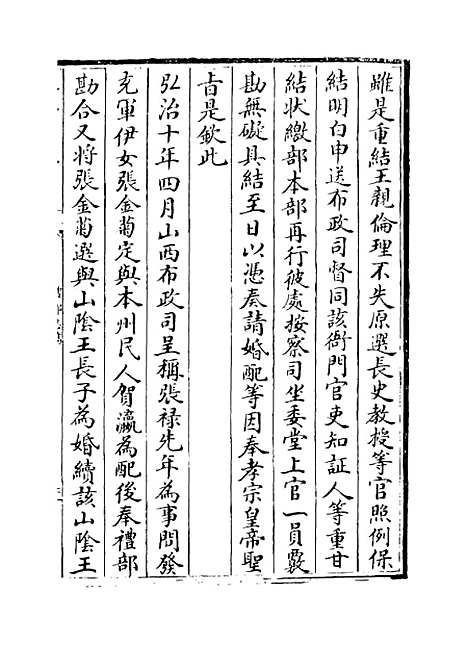 雖是重結王親倫理不失原選長史教授等官照例保
結明白申送布政司督同該衙門官吏知証人等重甘
結狀繳部本部再行彼處按察司坐委堂上官一員覈
勘無礙具結至日以憑奏請婚配等因奉孝宗皇帝聖
旨是欽此
弘治十年四月山西布政司呈稱張祿先年為事問發
充軍伊女張金蒴定與本州民人賀瀛為配後奉禮部
勘合又將張金蒴選與山陰王長子為婚續該山陰王